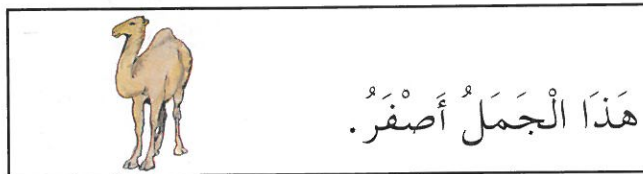 هَذَا الْجَمَلُ أَصْفَرُ.